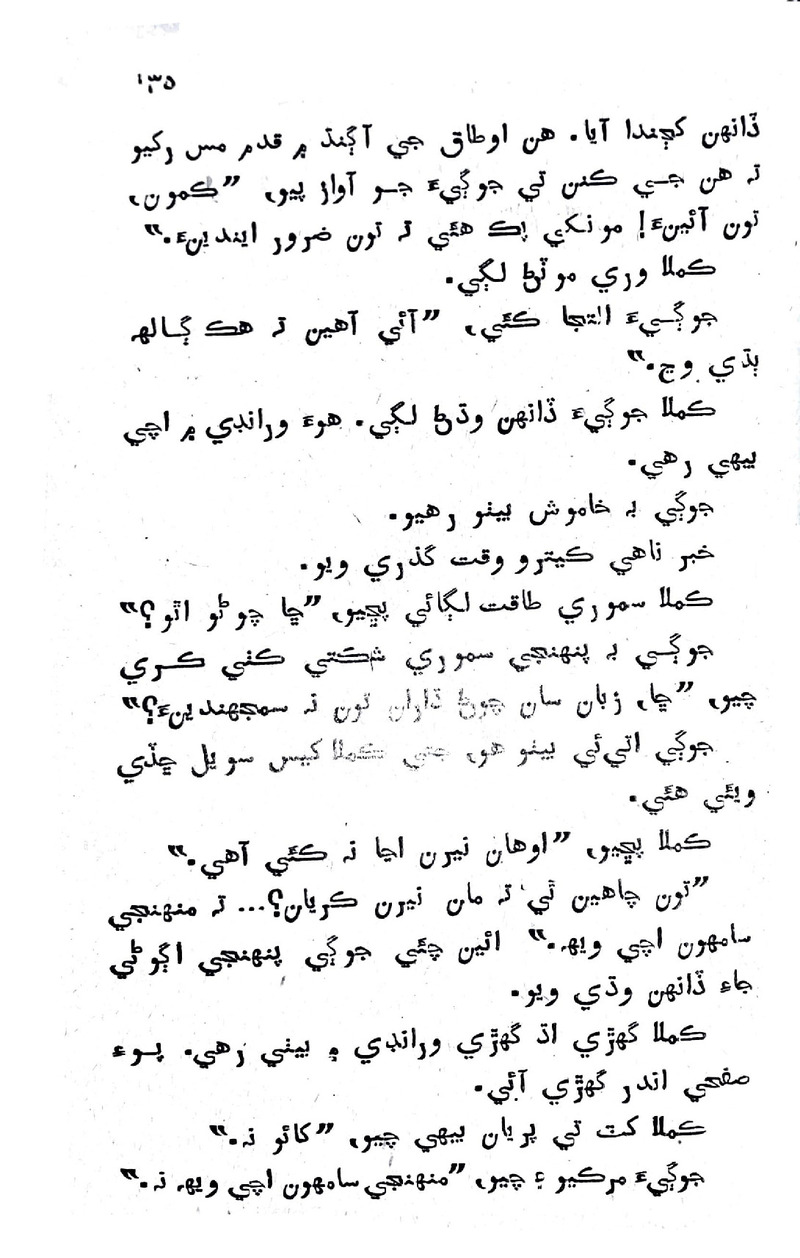 ۱۳۵
ڏانهن کڄندا آيا. هن اوطاق جي آڳنڌ ۾ قدم مس رکيو
تہ هن جي ڪنن تي جوڳيءَ جو آواز پيو، ”ڪمون،
تون آئينءَ! مونکي پڪ هئي تہ تون ضرور ايندينءَ.“
ڪملا وري موٽڻ لڳي.
جوڳيءَ التجا ڪئي، ”آئي آهين تہ هڪ ڳالهہ
ٻڌي وڃ.“
ڪملا جوڳيءَ ڏانهن وڌڻ لڳي. هوءَ ورانڊي ۾ اچي
بيهي رهي.
جوڳي بہ خاموش بيٺو رهيو.
خبر ناهي ڪيترو وقت گذري ويو.
ڪملا سموري طاقت لڳائي پڇيو، ”ڇا چوڻو اٿو؟“
جوڳي بہ پنهنجي سموري شڪتي ڪٺي ڪري
چيو، ”ڇا، زبان سان چوڻ ڌاران تون نہ سمجهندينءَ؟“
جوڳي اتي‌ئي بيٺو هو، جتي ڪملا کيس سويل ڇڏي
ويئي هئي.
ڪملا پڇيو، ”اوهان نيرن اڃا نہ ڪئي آهي.“
”تون چاهين ٿي تہ مان نيرن ڪريان؟... تہ منهنجي
سامهون اچي ويهہ.“ ائين چئي جوڳي پنهنجي اڳوڻي
جاءِ ڏانهن وڌي ويو.
ڪملا گهڙي اڌ گهڙي ورانڊي ۾ بيٺي رهي. پوءِ
صفحي اندر گهڙي آئي.
ڪملا کٽ تي پريان بيهي چيو، ”کائو نہ.“
جوڳيءَ مرڪيو ۽ چيو، ”منهنجي سامهون اچي ويهہ نہ.“